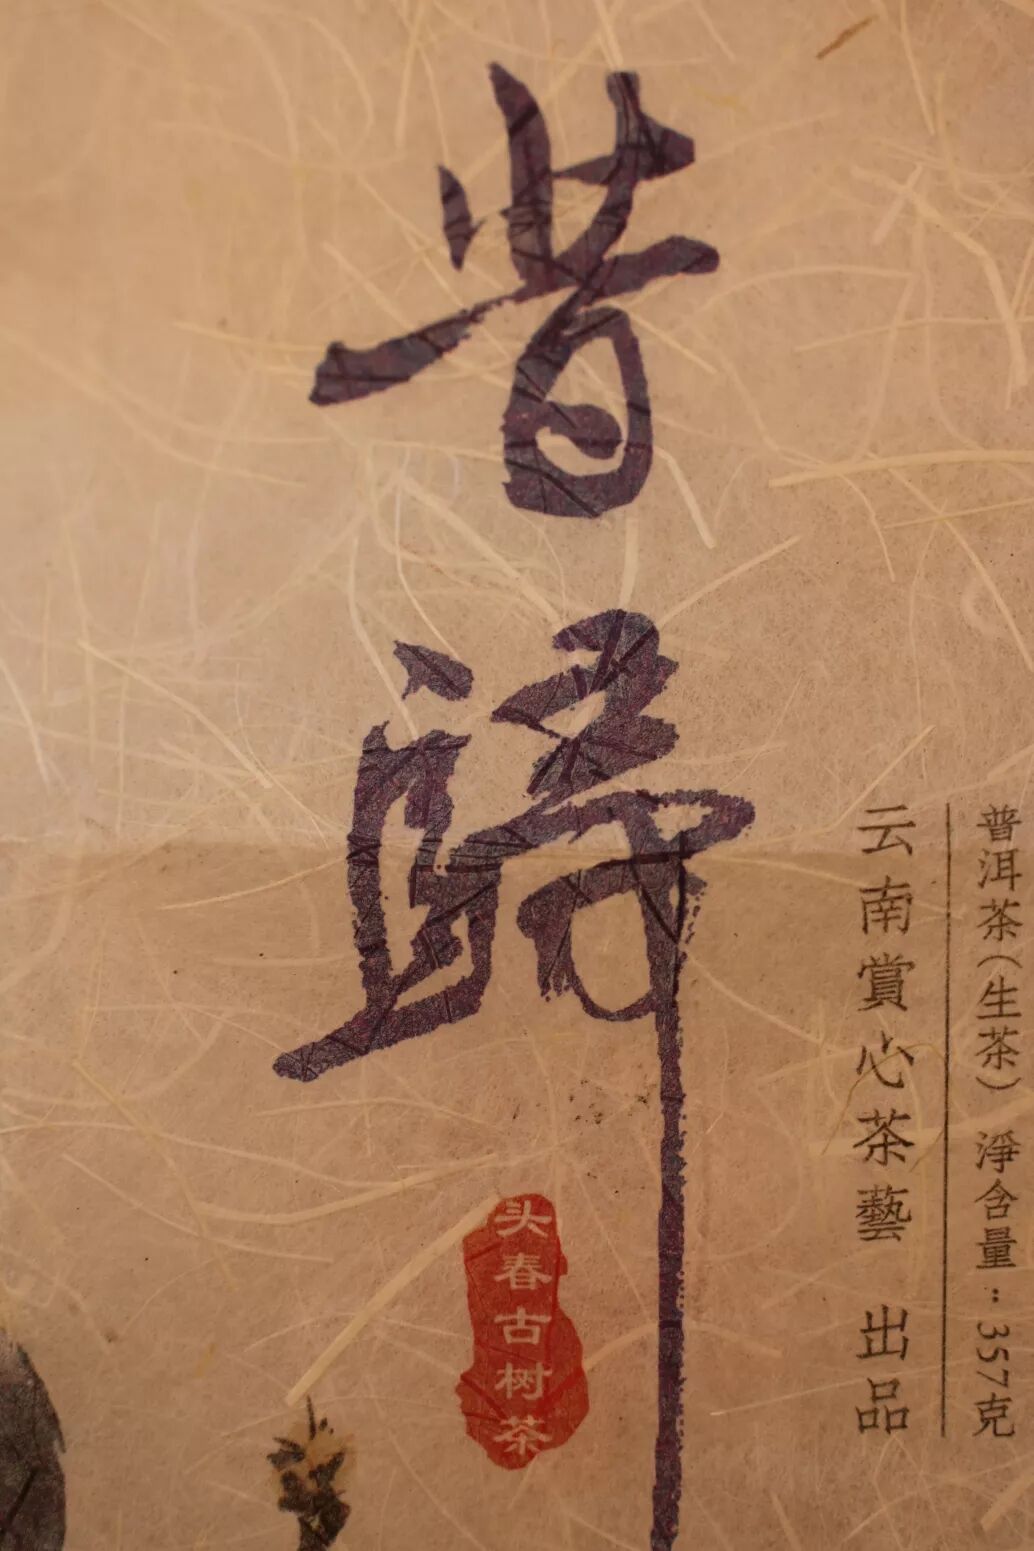 昔歸
头春古树茶
普洱茶（生茶） 淨含量：357克
云南賞心茶藝 出品